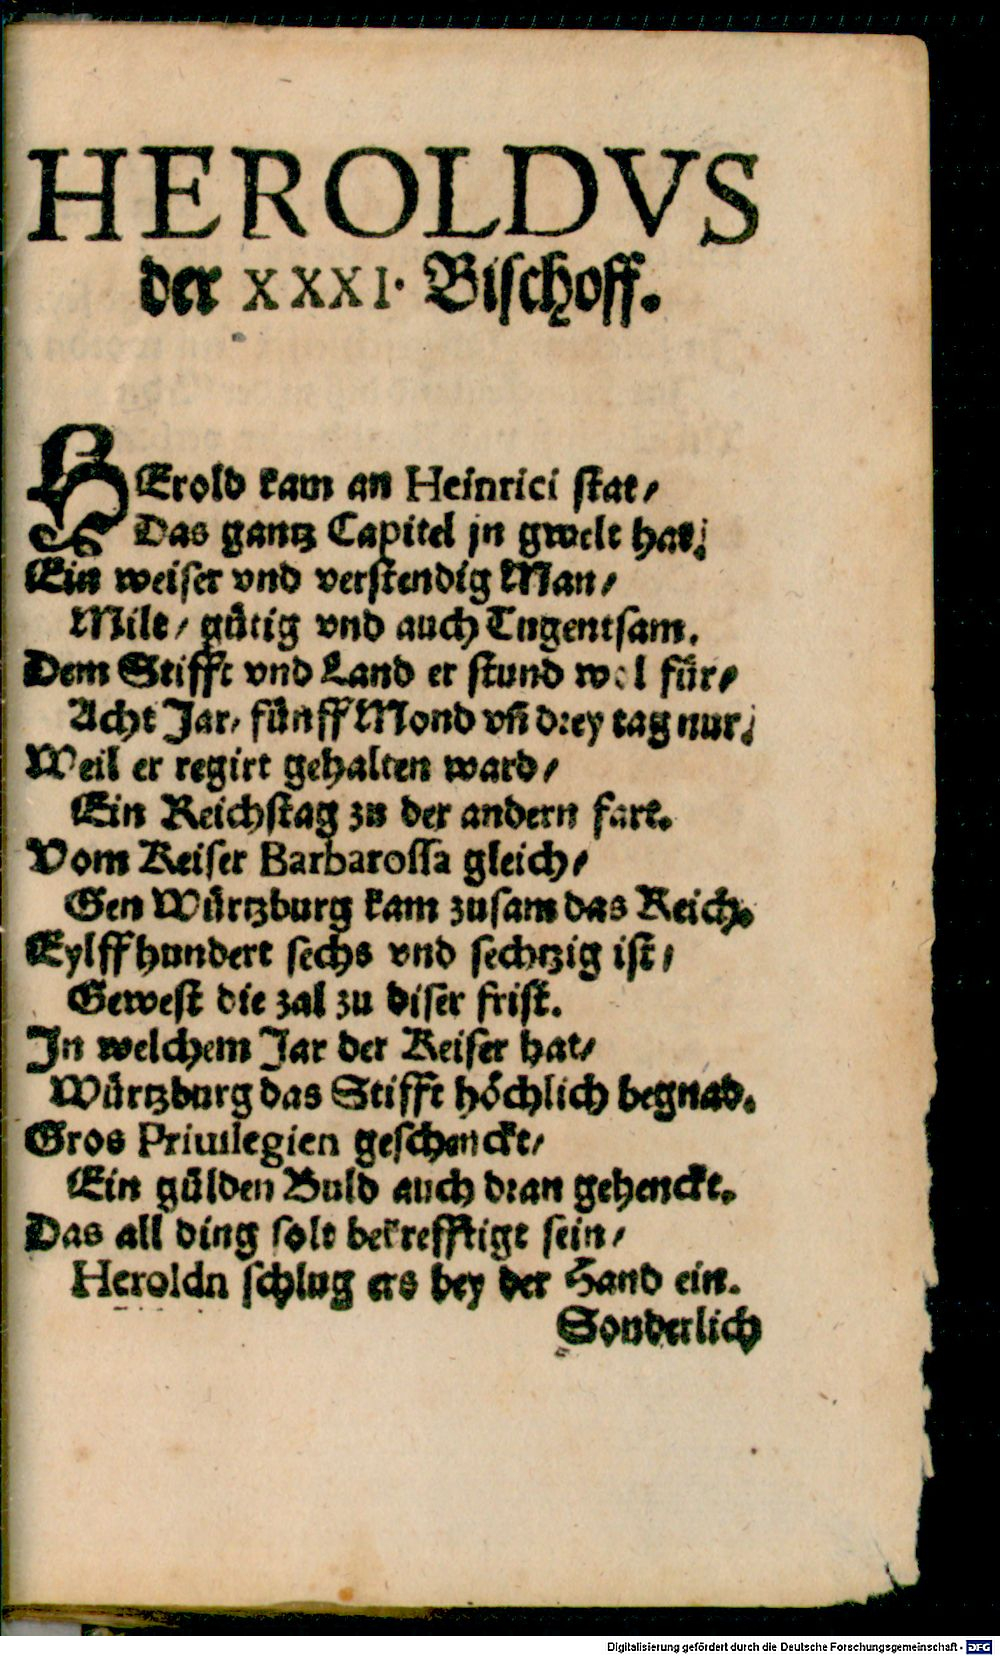 HEROLDVS
der XXXI. Bischoff.
HErold kam an Heinrici stat/
Das gantz Capitel jn gwelt hat/
Ein weiser vnd verstendig Man/
Milt/ gütig vnd auch Tugentsam.
Dem Stifft vnd Land er stund wol für/
Acht Jar/ fünff Mond vñ drey tag nur/
Weil er regirt gehalten ward/
Ein Reichstag zu der andern fart.
Vom Keiser Barbarossa gleich/
Gen Würtzburg kam zusam das Reich.
Eylff hundert sechs vnd sechtzig ist/
Gewest die zal zu diser frist.
In welchem Jar der Keiser hat/
Würtzburg das Stifft höchlich begnad.
Gros Priuilegien geschenckt/
Ein gülden Buld auch dran gehenckt.
Das all ding solt bekrefftigt sein/
Heroldn schlug ers bey der Hand ein.
Sonderlich
Digitalisierung gefördert durch die Deutsche Forschungsgemeinschaft - DFG